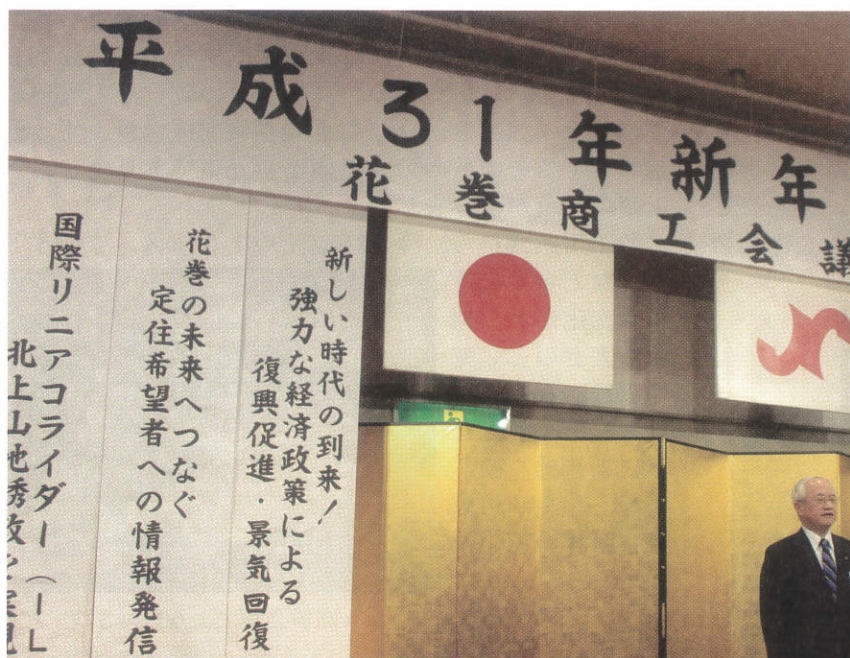 平成31年新年
花巻商工会議
新しい時代の到来！
強力な経済政策による
復興促進・景気回復
花巻の未来へつなぐ
定住希望者への情報発信
国際リニアコライダー（IL
北上山地誘致を実現